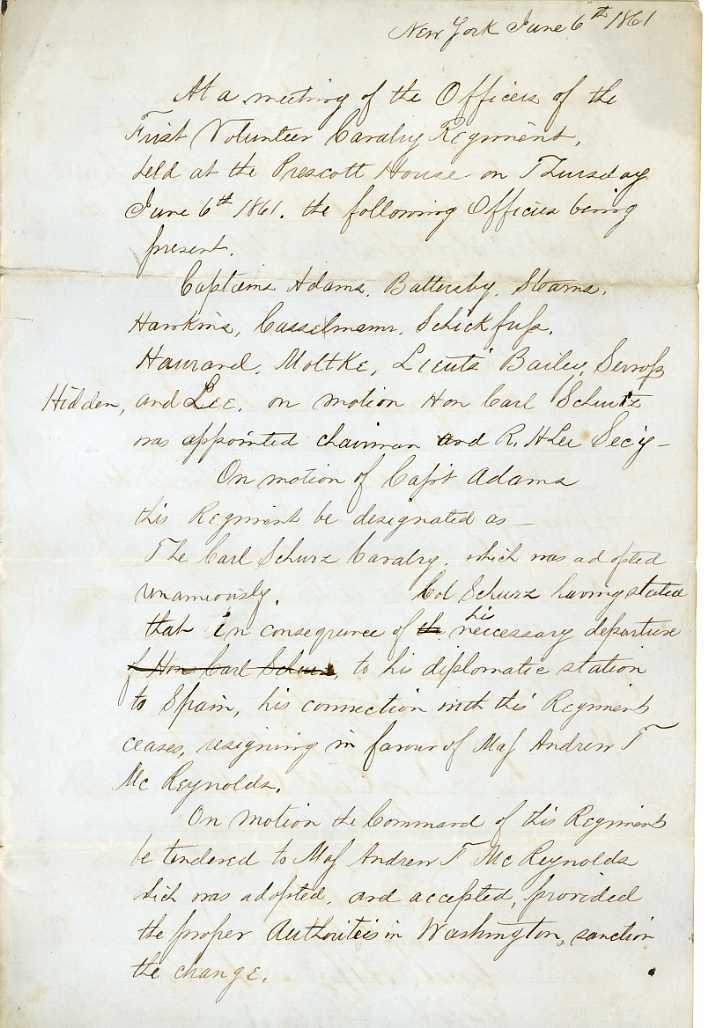 New York June 6th 1861
At a meeting of the Officers of the
First Volunteer Cavalry Regiment,
held at the Prescott House on Thursday
June 6th 1861. the following Officers being
present.
Captains Adams, Battersby, Stearns,
Hawkins, Casselmann, Schickfuß,
Haurand, Moltke, Lieuts Bailey, Serroß
Hidden, and Lee. on motion Hon Carl Schurtz
was appointed chairman and R. H Lee Secy —
On motion of Capt Adams
this Regiment be designated as —
The Carl Schurz Cavalry. which was adopted
unamiously. Col Schurz having stated
that in consequence of th his neccessary departure
of Hon Carl Schurz, to his diplomatic station
to Spain, his connection with this Regiment
ceases, resigning in favour of Maj Andrew T
Mc Reynolds.
On motion the Command of this Regiment
be tendered to Maj Andrew T Mc Reynolds
which was adopted, and accepted, provided
the proper Authorities in Washington, sanction
the change.